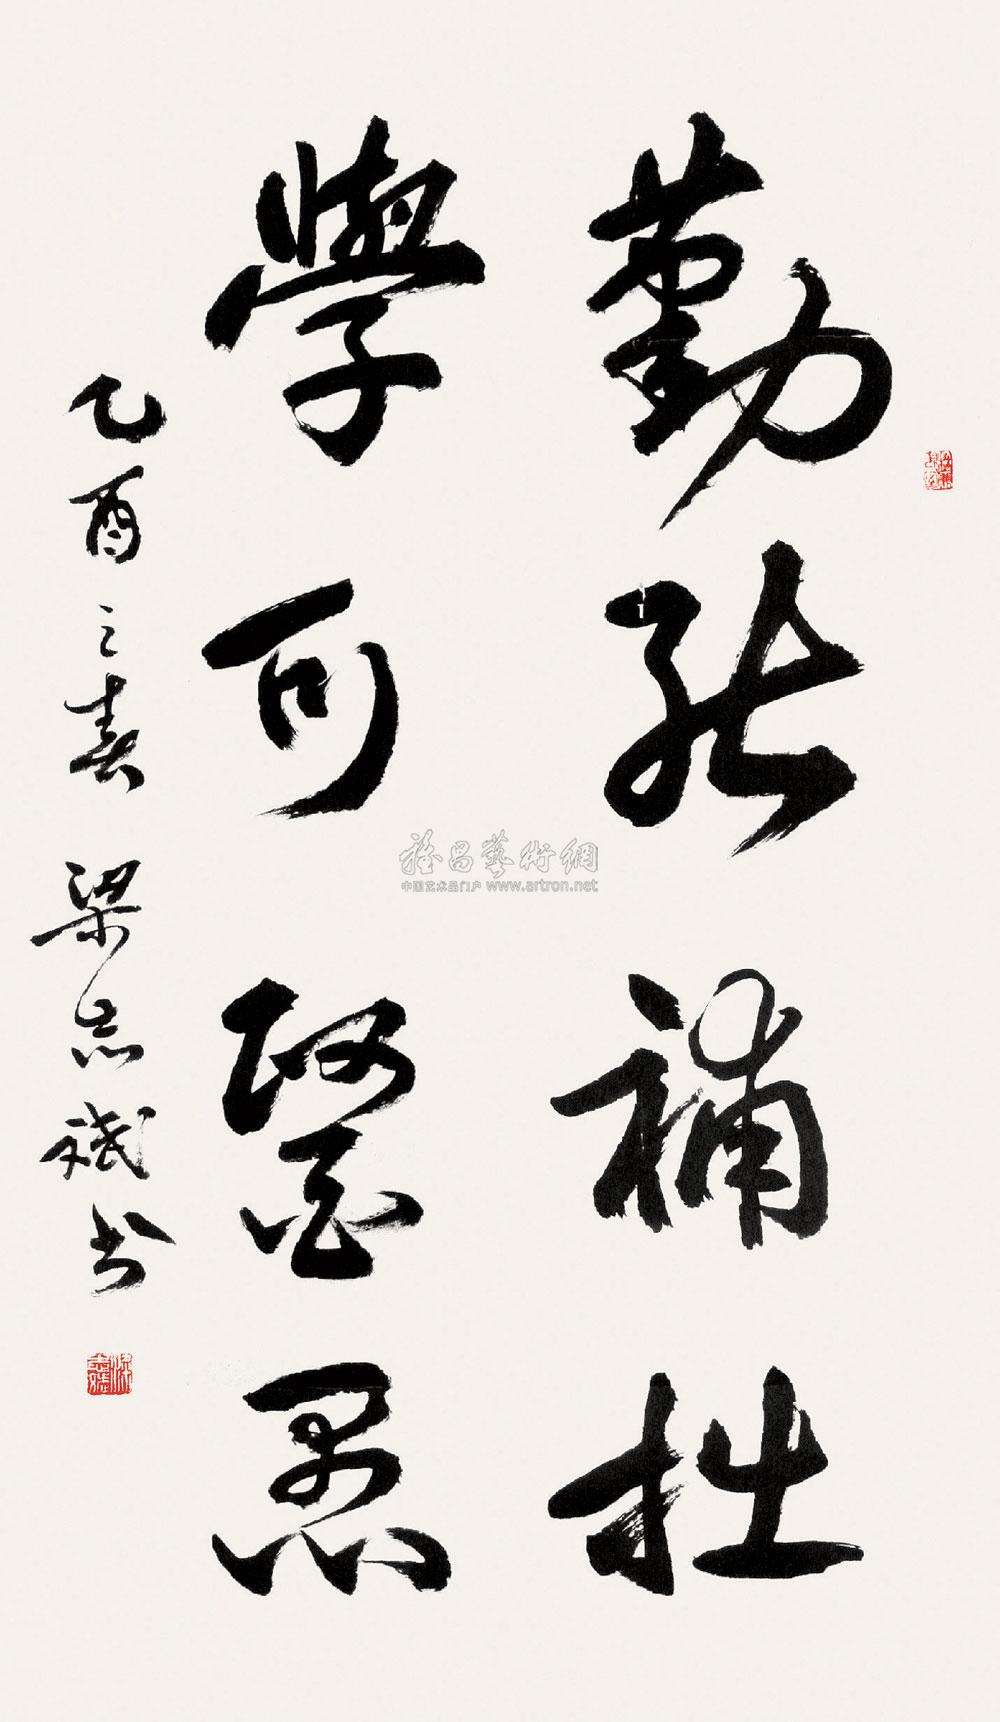 勤能補拙
學可醫愚
乙酉之春 梁志斌书
雅昌藝術網
中国艺术品门户 www.artron.net